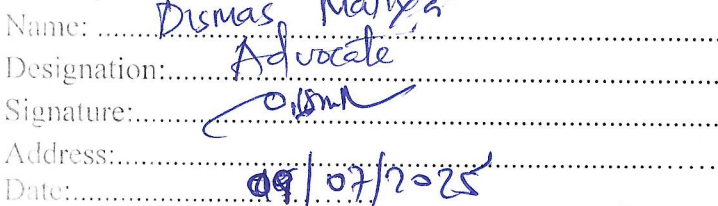 Name: ...... Dismas
Designation:...... Advocate
Signature:......
Address:......
Date:...... 09/07/2025